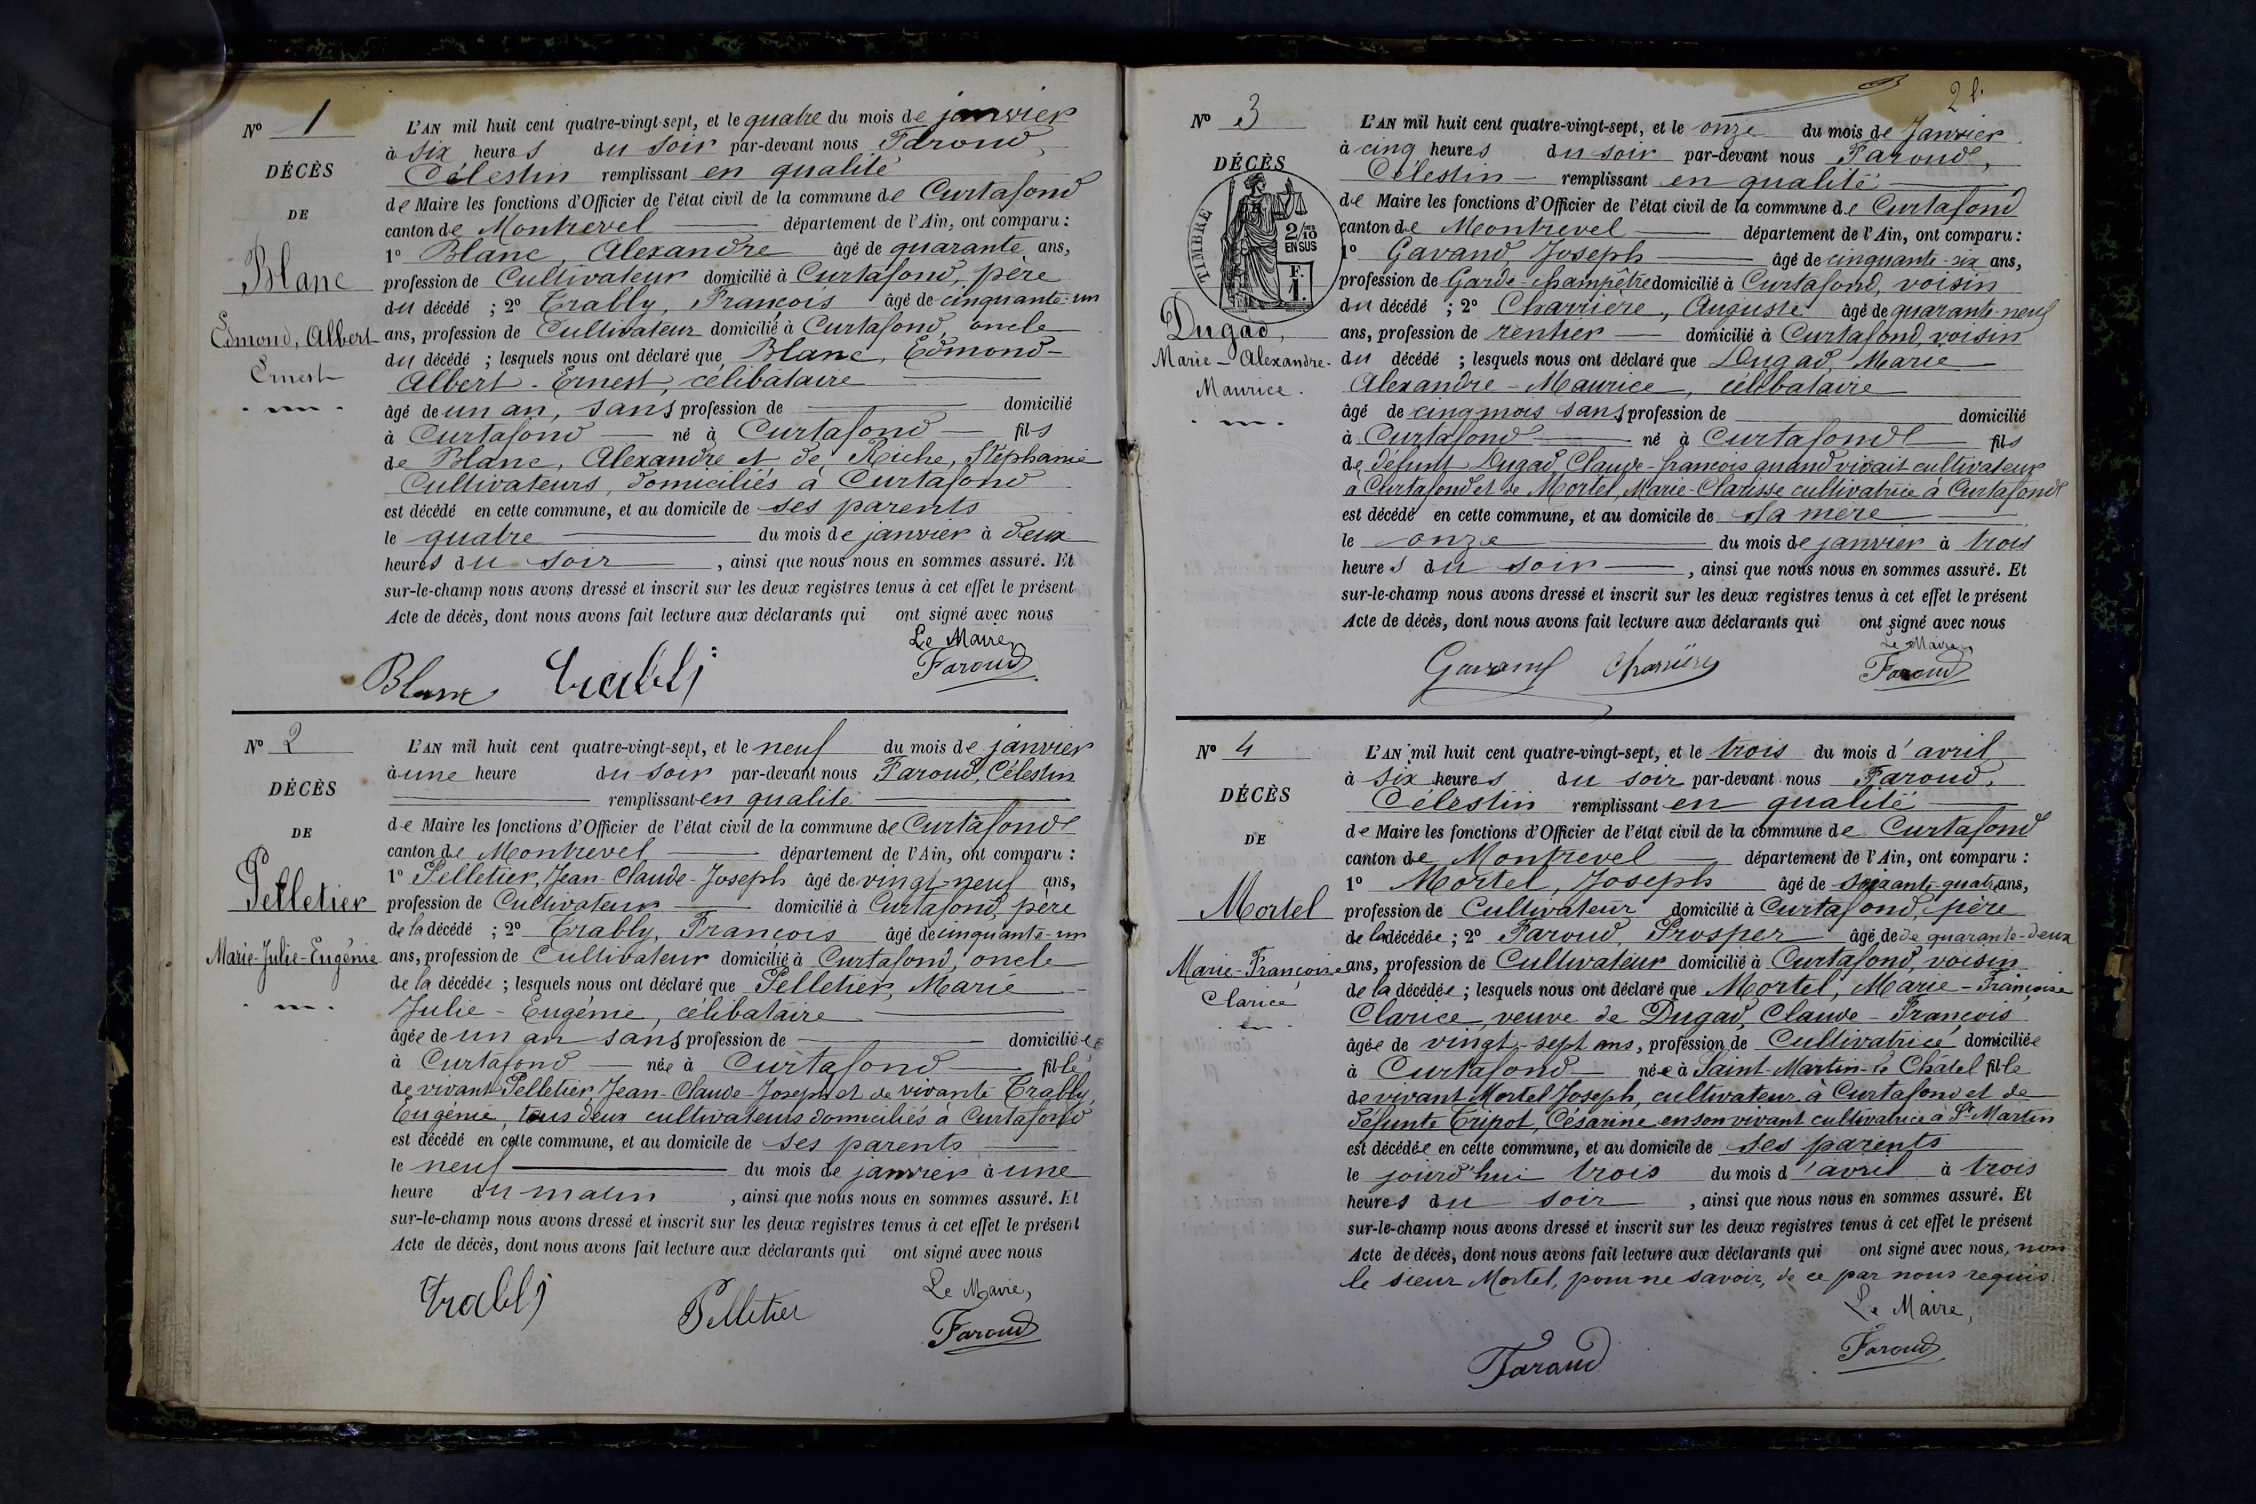 Nº 1
DÉCÈS
DE
Blanc
Edmond, Albert
Ernest
L'AN mil huit cent quatre-vingt-sept, et le quatre du mois de janvier
à six heures du soir par-devant nous Faroud,
Célestin remplissant en qualité
de Maire les fonctions d'Officier de l'état civil de la commune de Curtafond
canton de Montrevel département de l'Ain, ont comparu :
1º Blanc, Alexandre âgé de quarante ans,
profession de Cultivateur domicilié à Curtafond, père
du décédé ; 2º Trably, François âgé de cinquante-un
ans, profession de Cultivateur domicilié à Curtafond, oncle
du décédé ; lesquels nous ont déclaré que Blanc, Edmond-
Albert-Ernest, célibataire
âgé de un an, sans profession de domicilié
à Curtafond né à Curtafond fils
de Blanc, Alexandre et de Riche, Stéphanie
Cultivateurs, domiciliés à Curtafond
est décédé en cette commune, et au domicile de ses parents
le quatre du mois de janvier à deux
heures du soir , ainsi que nous nous en sommes assuré. Et
sur-le-champ nous avons dressé et inscrit sur les deux registres tenus à cet effet le présent
Acte de décès, dont nous avons fait lecture aux déclarants qui ont signé avec nous
Le Maire,
Blanc Trably Faroud
Nº 2
DÉCÈS
DE
Pelletier
Marie-Julie-Eugénie
L'AN mil huit cent quatre-vingt-sept, et le neuf du mois de janvier
à une heure du soir par-devant nous Faroud, Célestin
remplissant en qualité
de Maire les fonctions d'Officier de l'état civil de la commune de Curtafond
canton de Montrevel département de l'Ain, ont comparu :
1º Pelletier, Jean-Claude-Joseph âgé de vingt-neuf ans,
profession de Cultivateur domicilié à Curtafond, père
de la décédé ; 2º Trably, François âgé de cinquante-un
ans, profession de Cultivateur domicilié à Curtafond, oncle
de la décédée ; lesquels nous ont déclaré que Pelletier, Marie
Julie-Eugénie, célibataire
âgée de un an sans profession de domiciliée
à Curtafond née à Curtafond fille
de vivant Pelletier, Jean-Claude-Joseph et de vivante Trably,
Eugénie, tous deux cultivateurs domiciliés à Curtafond
est décédé en cette commune, et au domicile de ses parents
le neuf du mois de janvier à une
heure du matin , ainsi que nous nous en sommes assuré. Et
sur-le-champ nous avons dressé et inscrit sur les deux registres tenus à cet effet le présent
Acte de décès, dont nous avons fait lecture aux déclarants qui ont signé avec nous
Le Maire,
Trably Pelletier Faroud
2
Nº 3
DÉCÈS
TIMBRE
2/10
EN SUS
F.
1.
Dugad,
Marie-Alexandre-
Maurice.
L'AN mil huit cent quatre-vingt-sept, et le onze du mois de Janvier
à cinq heures du soir par-devant nous Faroud,
Célestin remplissant en qualité
de Maire les fonctions d'Officier de l'état civil de la commune de Curtafond
canton de Montrevel département de l'Ain, ont comparu :
1º Gavand, Joseph âgé de cinquante-six ans,
profession de Garde-champêtre domicilié à Curtafond, voisin
du décédé ; 2º Charrière, Auguste âgé de quarante-neuf
ans, profession de rentier domicilié à Curtafond voisin
du décédé ; lesquels nous ont déclaré que Dugad, Marie
Alexandre-Maurice, célibataire
âgé de cinq mois sans profession de domicilié
à Curtafond né à Curtafond fils
de défunt Dugad, Claude-françois quand vivait cultivateur
à Curtafond et de Mortel, Marie-Clarisse cultivatrice à Curtafond
est décédé en cette commune, et au domicile de sa mère
le onze du mois de janvier à trois
heures du soir , ainsi que nous nous en sommes assuré. Et
sur-le-champ nous avons dressé et inscrit sur les deux registres tenus à cet effet le présent
Acte de décès, dont nous avons fait lecture aux déclarants qui ont signé avec nous
Le Maire,
Gavand Charrière Faroud
Nº 4
DÉCÈS
DE
Mortel
Marie-Françoise
Clarice
L'AN mil huit cent quatre-vingt-sept, et le trois du mois d'avril
à six heures du soir par-devant nous Faroud,
Célestin remplissant en qualité
de Maire les fonctions d'Officier de l'état civil de la commune de Curtafond
canton de Montrevel département de l'Ain, ont comparu :
1º Mortel, Joseph âgé de soixante-quatre ans,
profession de Cultivateur domicilié à Curtafond, père
de la décédée ; 2º Faroud, Prosper âgé de de quarante-deux
ans, profession de Cultivateur domicilié à Curtafond, voisin
de la décédée ; lesquels nous ont déclaré que Mortel, Marie-Françoise
Clarice, veuve de Dugad, Claude-François
âgée de vingt-sept ans, profession de Cultivatrice domiciliée
à Curtafond née à Saint-Martin-le Châtel fille
de vivant Mortel Joseph, cultivateur à Curtafond et de
défunte Tripot, Césarine en son vivant cultivatrice à St Martin
est décédée en cette commune, et au domicile de ses parents
le jourd'hui trois du mois d'avril à trois
heures du soir , ainsi que nous nous en sommes assuré. Et
sur-le-champ nous avons dressé et inscrit sur les deux registres tenus à cet effet le présent
Acte de décès, dont nous avons fait lecture aux déclarants qui ont signé avec nous, non
le sieur Mortel, pour ne savoir, de ce par nous requis.
Le Maire,
Faraud Faroud